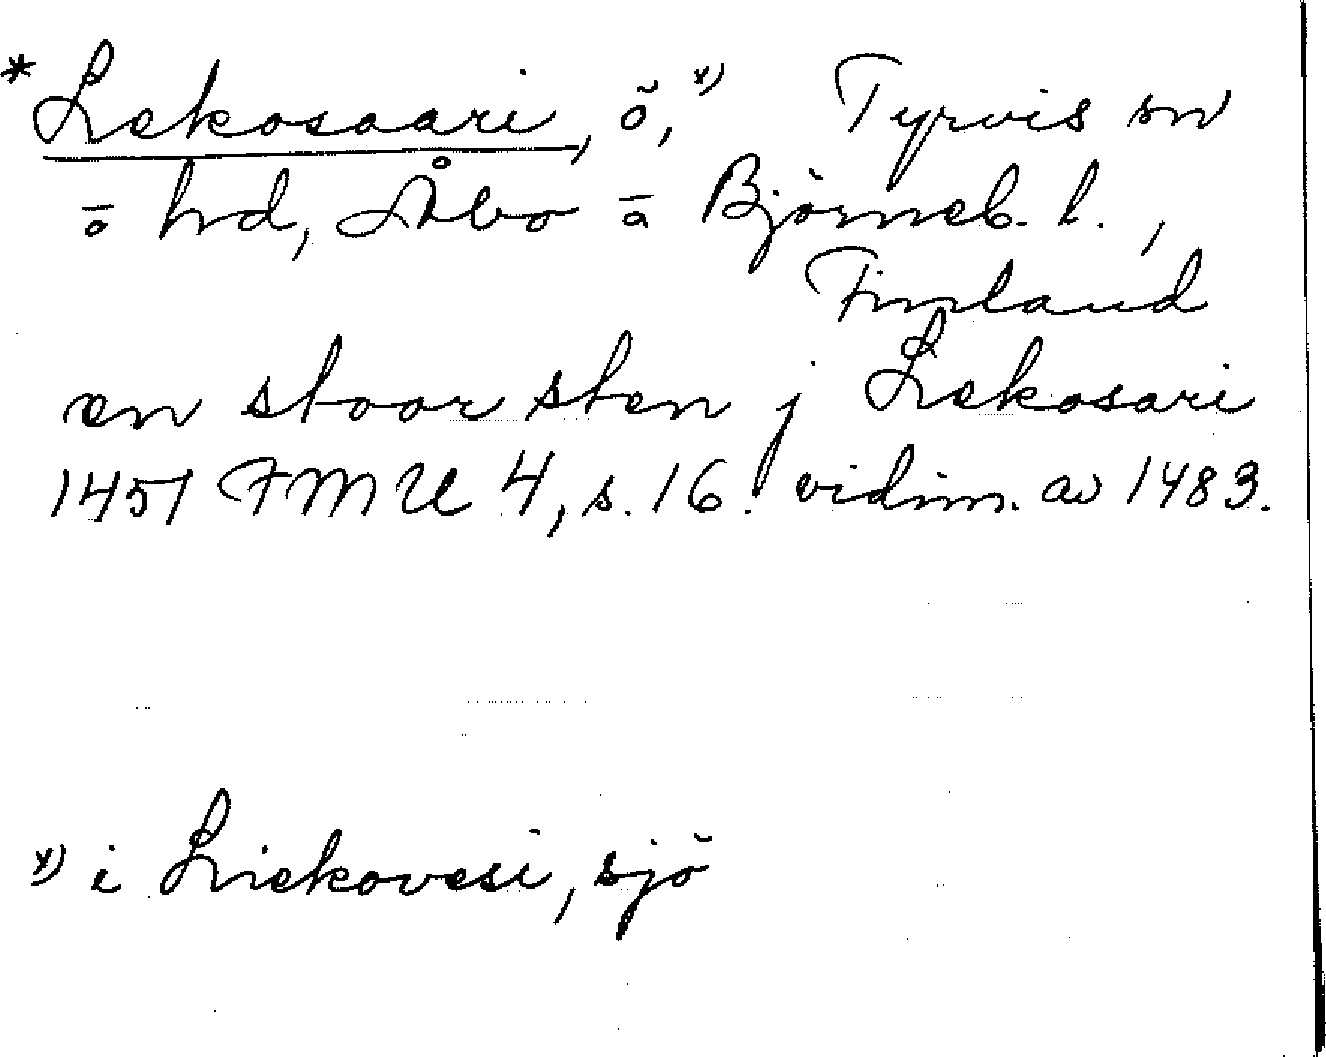 *Lekosaari, ö, *) Tyrvis sn
o hd, Åbo o Björneb. l.,
Finland
en stoor sten j Lekosari
1451 FMU 4, s. 16. vidim. av 1483.
*) i Liekovesi, sjö